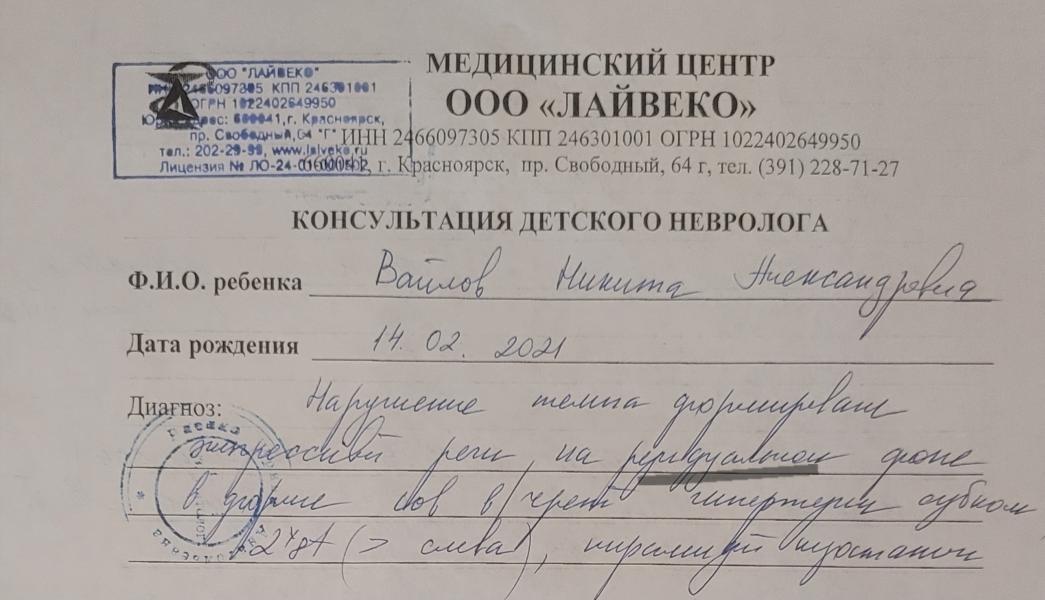 МЕДИЦИНСКИЙ ЦЕНТР
ООО «ЛАЙВЕКО»
ИНН 2466097305 КПП 246301001 ОГРН 1022402649950
660041, г. Красноярск, пр. Свободный, 64 г, тел. (391) 228-71-27
ООО "ЛАЙВЕКО"
ИНН 2466097305 КПП 246301001
ОГРН 1022402649950
Юр. адрес: 660041, г. Красноярск,
пр. Свободный, 64 "Г"
тел.: 202-29-99, www.laiveko.ru
Лицензия № ЛО-24-01-
КОНСУЛЬТАЦИЯ ДЕТСКОГО НЕВРОЛОГА
Ф.И.О. ребенка Вайлов Никита Александрович
Дата рождения 14. 02. 2021
Диагноз: Нарушение темпа формирован
экспрессивной речи на резидуальном фоне
в форме в/череп гипертензии субком
(> слева), пирамидн